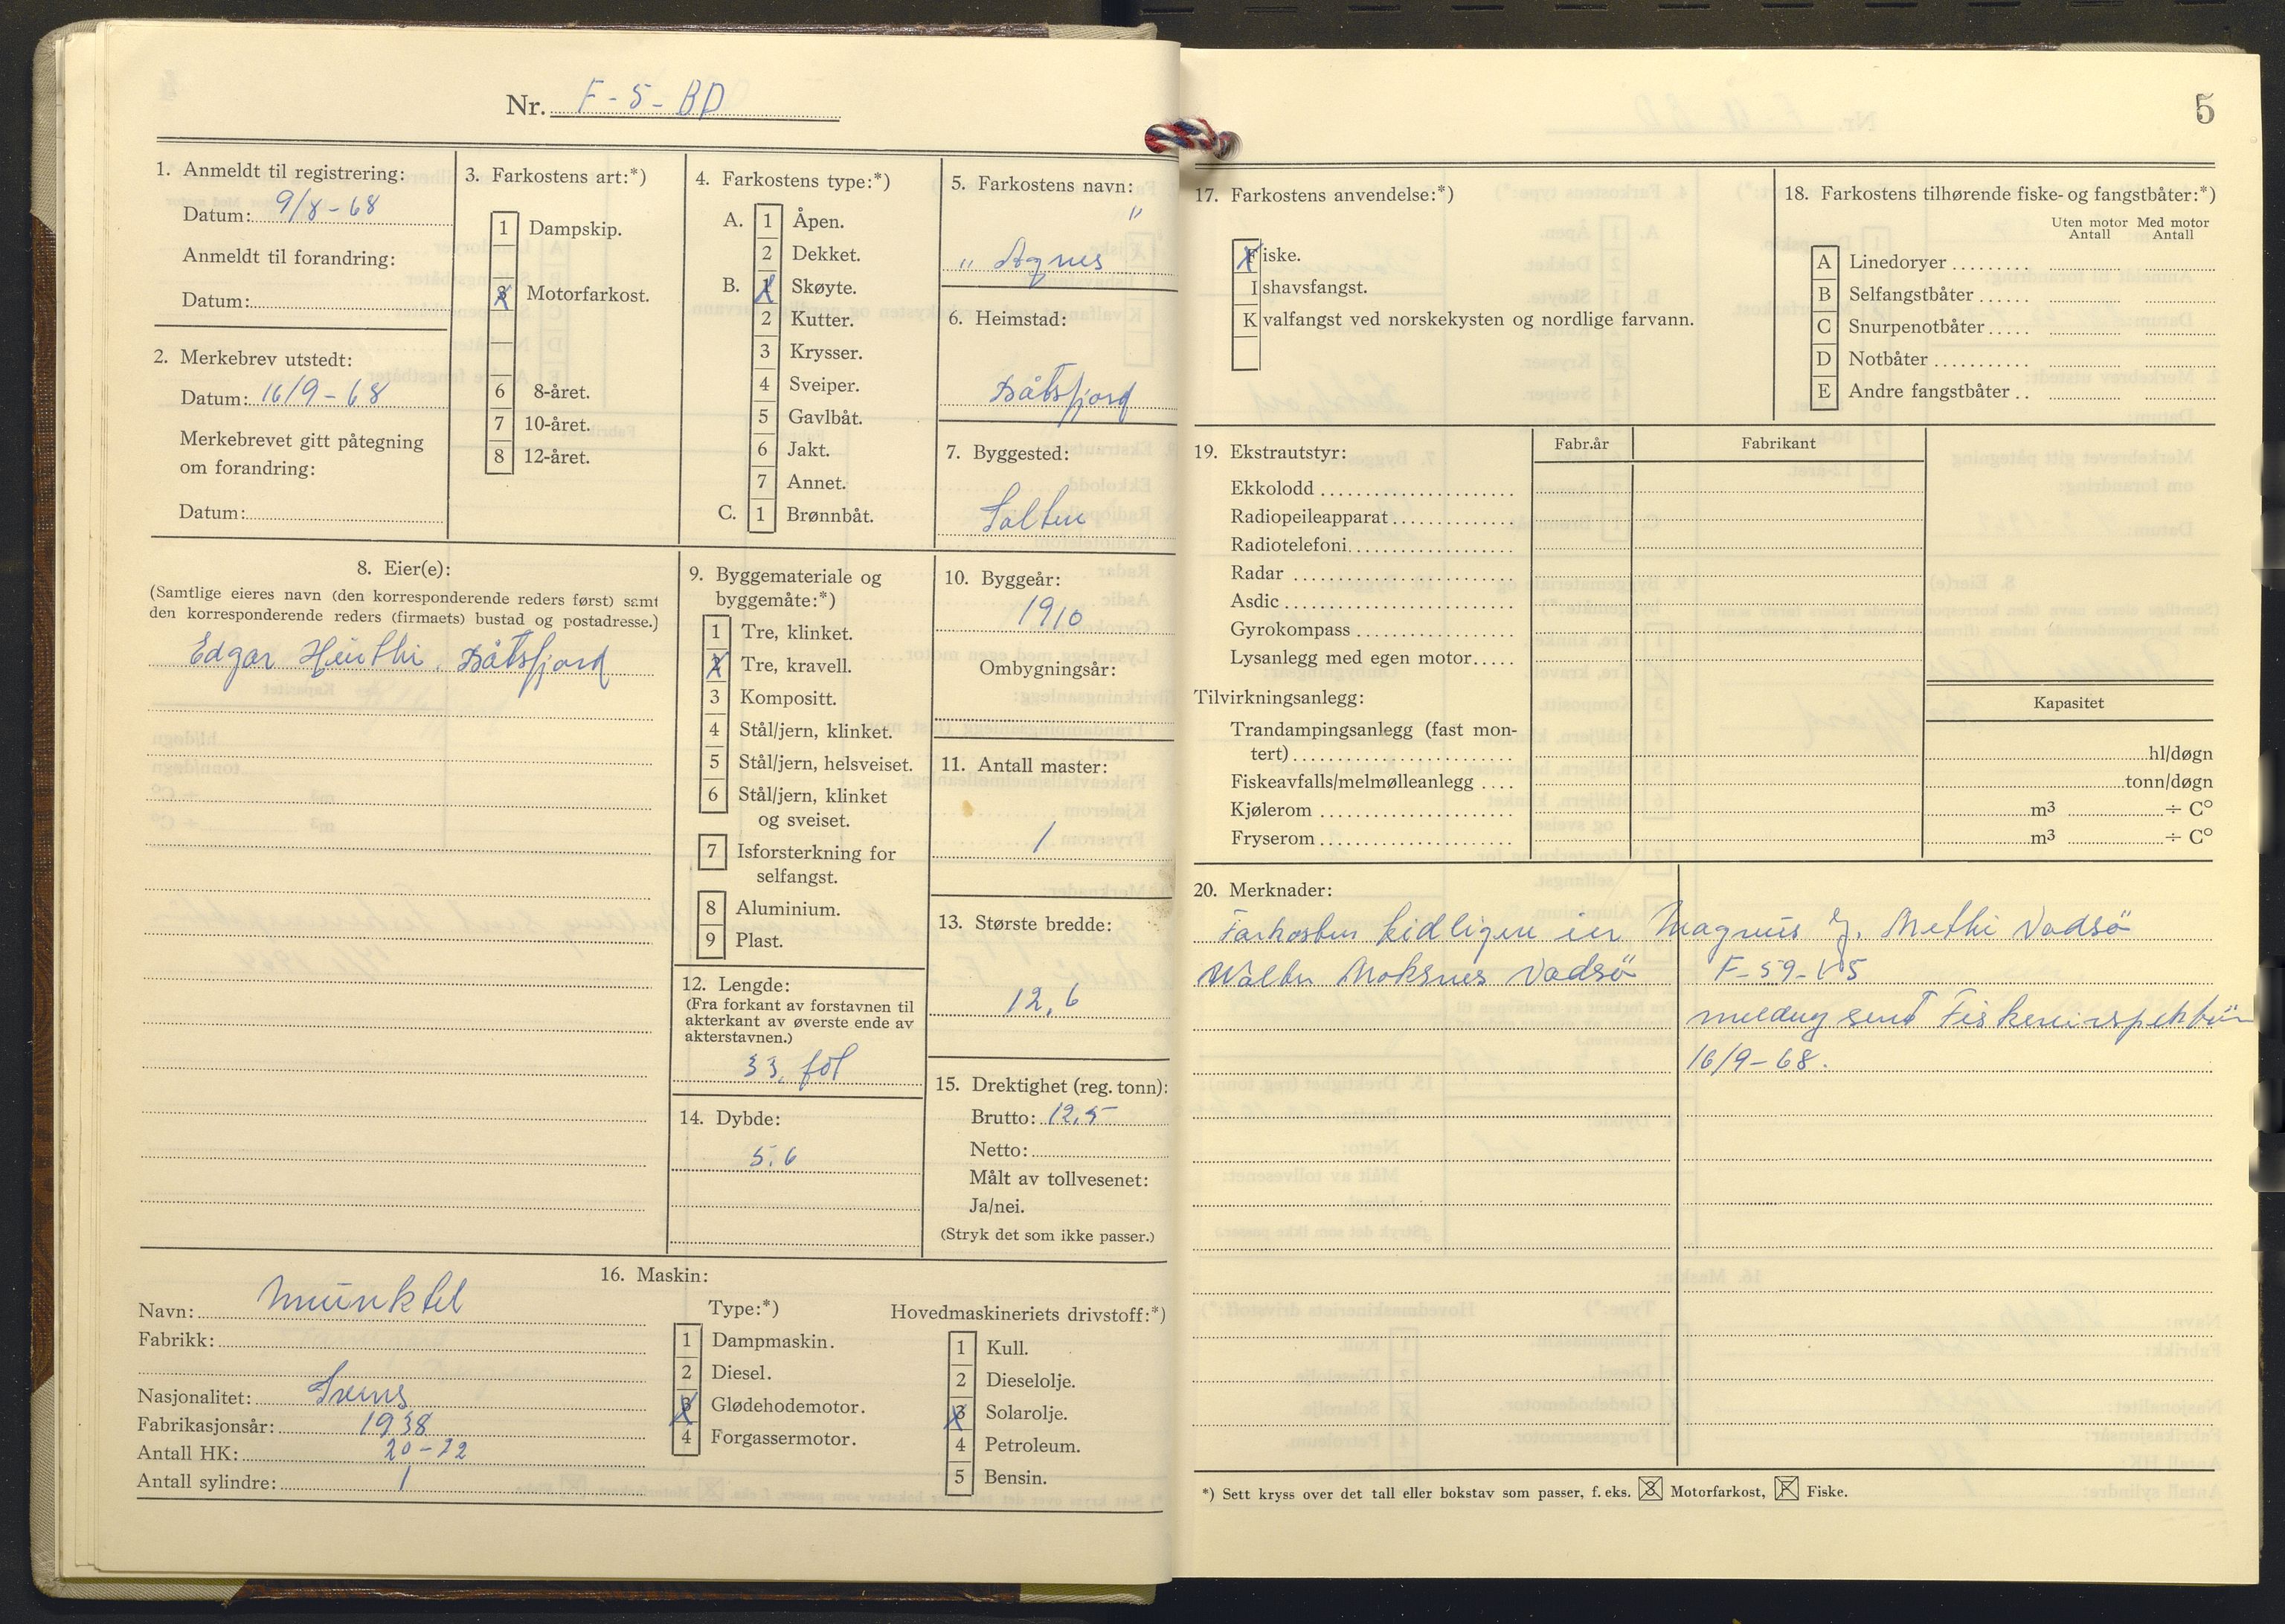 Nr. F-5-BD
1. Anmeldt til registrering:
Datum: 9/8-68
Anmeldt til forandring:
Datum:
2. Merkebrev utstedt:
Datum: 16/9-68
Merkebrevet gitt påtegning
om forandring:
Datum:
3. Farkostens art:*)
1 Dampskip.
3 Motorfarkost.
6 8-året.
7 10-året.
8 12-året.
4. Farkostens type:*)
A. 1 Åpen.
2 Dekket.
B. 1 Skøyte.
2 Kutter.
3 Krysser.
4 Sveiper.
5 Gavlbåt.
6 Jakt.
7 Annet.
C. 1 Brønnbåt.
5. Farkostens navn:
"Agnes"
6. Heimstad:
Båtsfjord
7. Byggested:
Salten
8. Eier(e):
(Samtlige eieres navn (den korresponderende reders først) samt
den korresponderende reders (firmaets) bustad og postadresse.)
Edgar Båtsfjord
9. Byggemateriale og
byggemåte:*)
1 Tre, klinket.
2 Tre, kravell.
3 Kompositt.
4 Stål/jern, klinket.
5 Stål/jern, helsveiset.
6 Stål/jern, klinket
og sveiset.
7 Isforsterkning for
selfangst.
8 Aluminium.
9 Plast.
10. Byggeår:
1910
Ombygningsår:
11. Antall master:
1
12. Lengde:
(Fra forkant av forstavnen til
akterkant av øverste ende av
akterstavnen.)
33. fot
13. Største bredde:
12,6
14. Dybde:
5.6
15. Drektighet (reg. tonn):
Brutto: 12,5
Netto:
Målt av tollvesenet:
Ja/nei.
(Stryk det som ikke passer.)
16. Maskin:
Navn: Munktel
Fabrikk:
Nasjonalitet: Svensk
Fabrikasjonsår: 1938
Antall HK: 20-22
Antall sylindre: 1
Type:*)
1 Dampmaskin.
2 Diesel.
3 Glødehodemotor.
4 Forgassermotor.
Hovedmaskineriets drivstoff:*)
1 Kull.
2 Dieselolje.
3 Solarolje.
4 Petroleum.
5 Bensin.
5
17. Farkostens anvendelse:*)
Fiske.
Ishavsfangst.
Kvalfangst ved norskekysten og nordlige farvann.
18. Farkostens tilhørende fiske- og fangstbåter:*)
Uten motor Med motor
Antall Antall
A Linedoryer
B Selfangstbåter
C Snurpenotbåter
D Notbåter
E Andre fangstbåter
19. Ekstrautstyr:
Fabr.år Fabrikant
Ekkolodd
Radiopeileapparat
Radiotelefoni
Radar
Asdic
Gyrokompass
Lysanlegg med egen motor
Tilvirkningsanlegg:
Kapasitet
Trandampingsanlegg (fast mon-
tert) hl/døgn
Fiskeavfalls/melmølleanlegg tonn/døgn
Kjølerom m3 ÷ C°
Fryserom m3 ÷ C°
20. Merknader:
Farkosten tidligere eier Magnus Methi Vadsö
Walter Moksnes Vadsö F-59-VS
melding sent Fiskeriinspektör
16/9-68.
*) Sett kryss over det tall eller bokstav som passer, f. eks. 3 Motorfarkost, F Fiske.